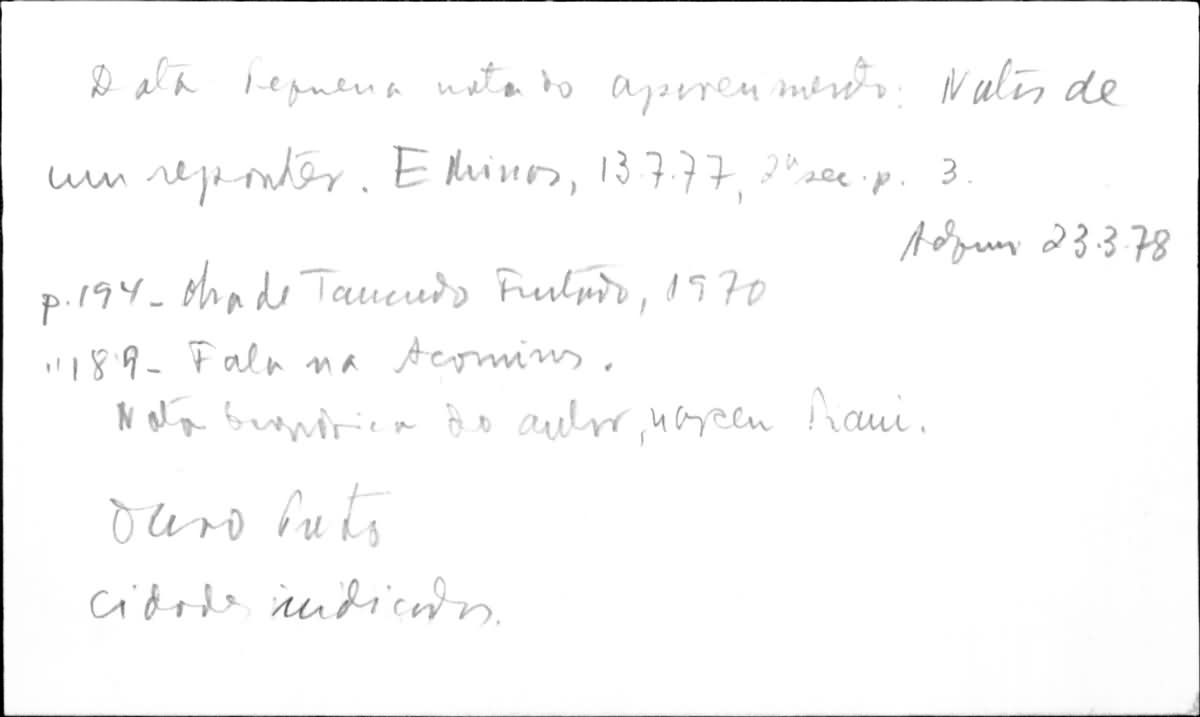 Data Pequena nota do aparecimento: Notas de
um repórter. E Minas, 13.7.77, 2ª sec. p. 3.
23.3.78
p.194 - obra de Tancredo Furtado, 1970
"189 - Fala na Acominas.
Nota do autor, nasceu Piaui.
Ouro Preto
Cidades indicadas.